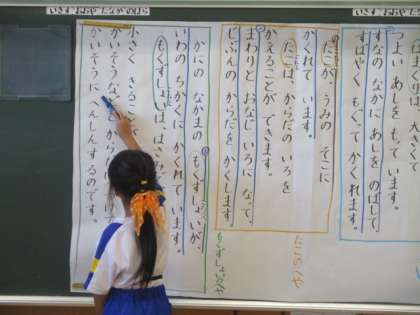 つよい あしを もって、
すなの なかに あしを のばして、
すばやく もぐって かくれます。
たこが、うみの そこに
かくれて います。
たこは、からだの いろを
かえることが できます。
まわりと おなじ いろに なって、
じぶんの からだを かくします。
かにの なかまの もくずしょいが、
いわの ちかくに かくれて います。
もくずしょいは、はさみ
小さく きる
かいそうなど からだ
かいそうに へんしんするのです。